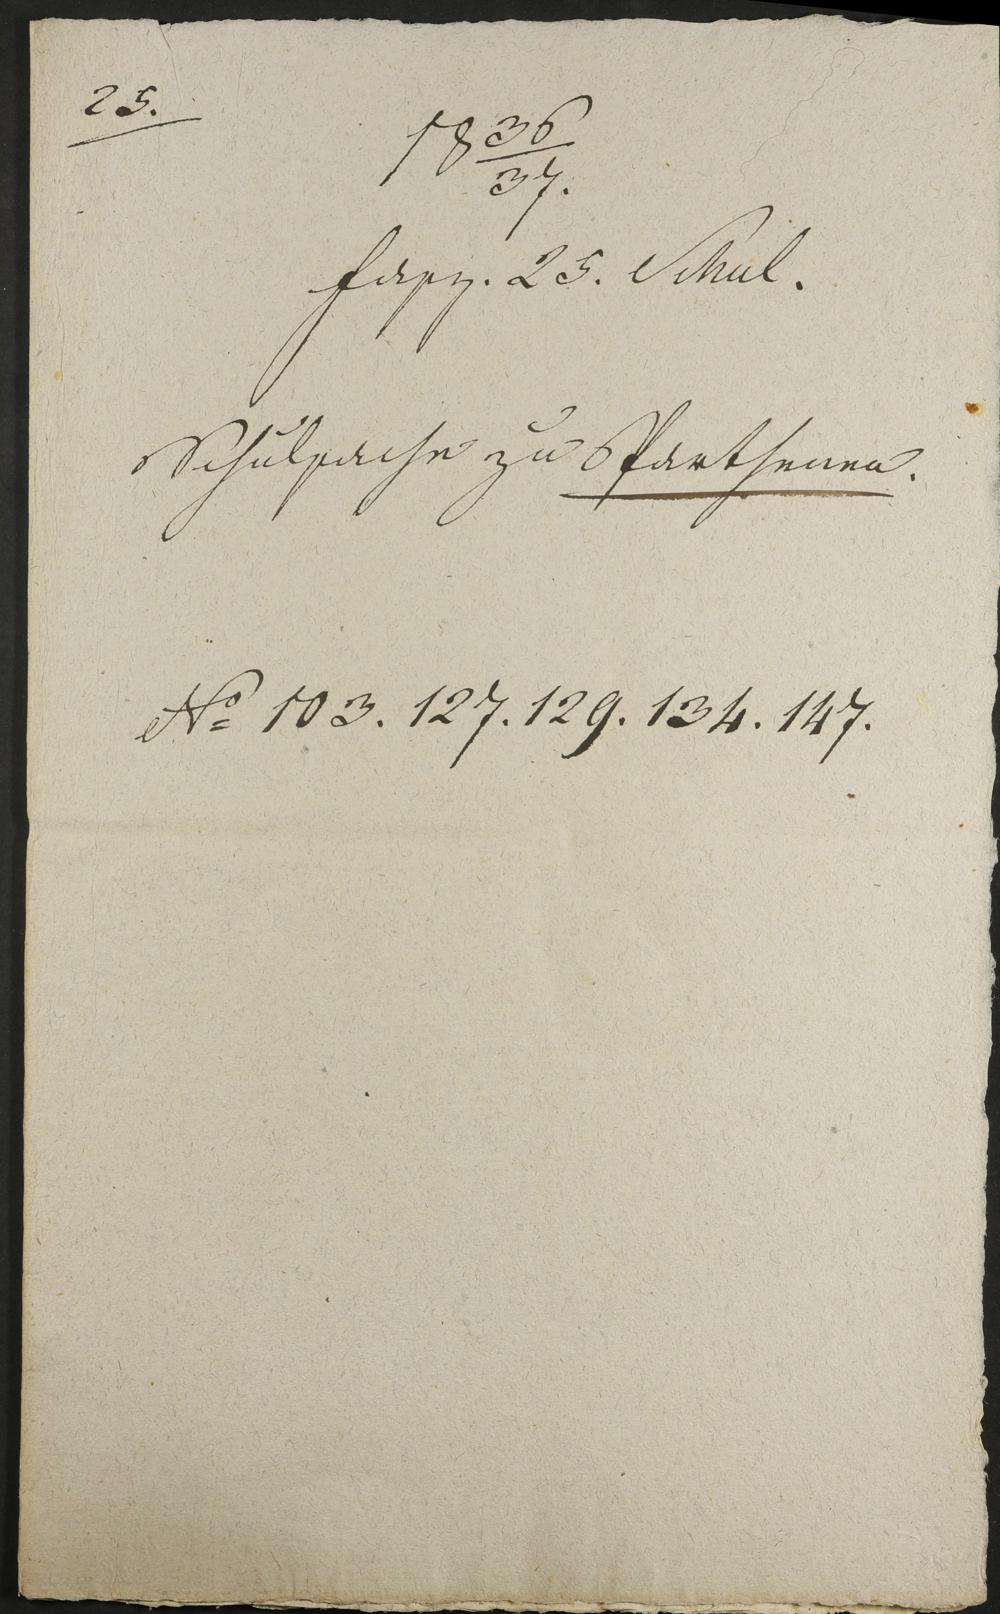 25.
18 36/37.
fasz. 25. Schul.
Schulsache zu Parthenen.
No 103. 127. 129. 134. 147.